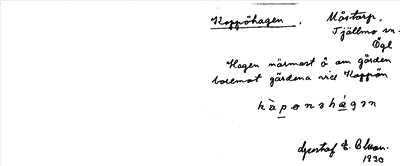 Koppöhagen. Måstorp,
Tjällmo sn.
Ögl
Hagen närmast ö om gården
bortmot gärdena vid Koppön
kȧpɘnɘhágɘn
Gustaf E. Olson.
1930